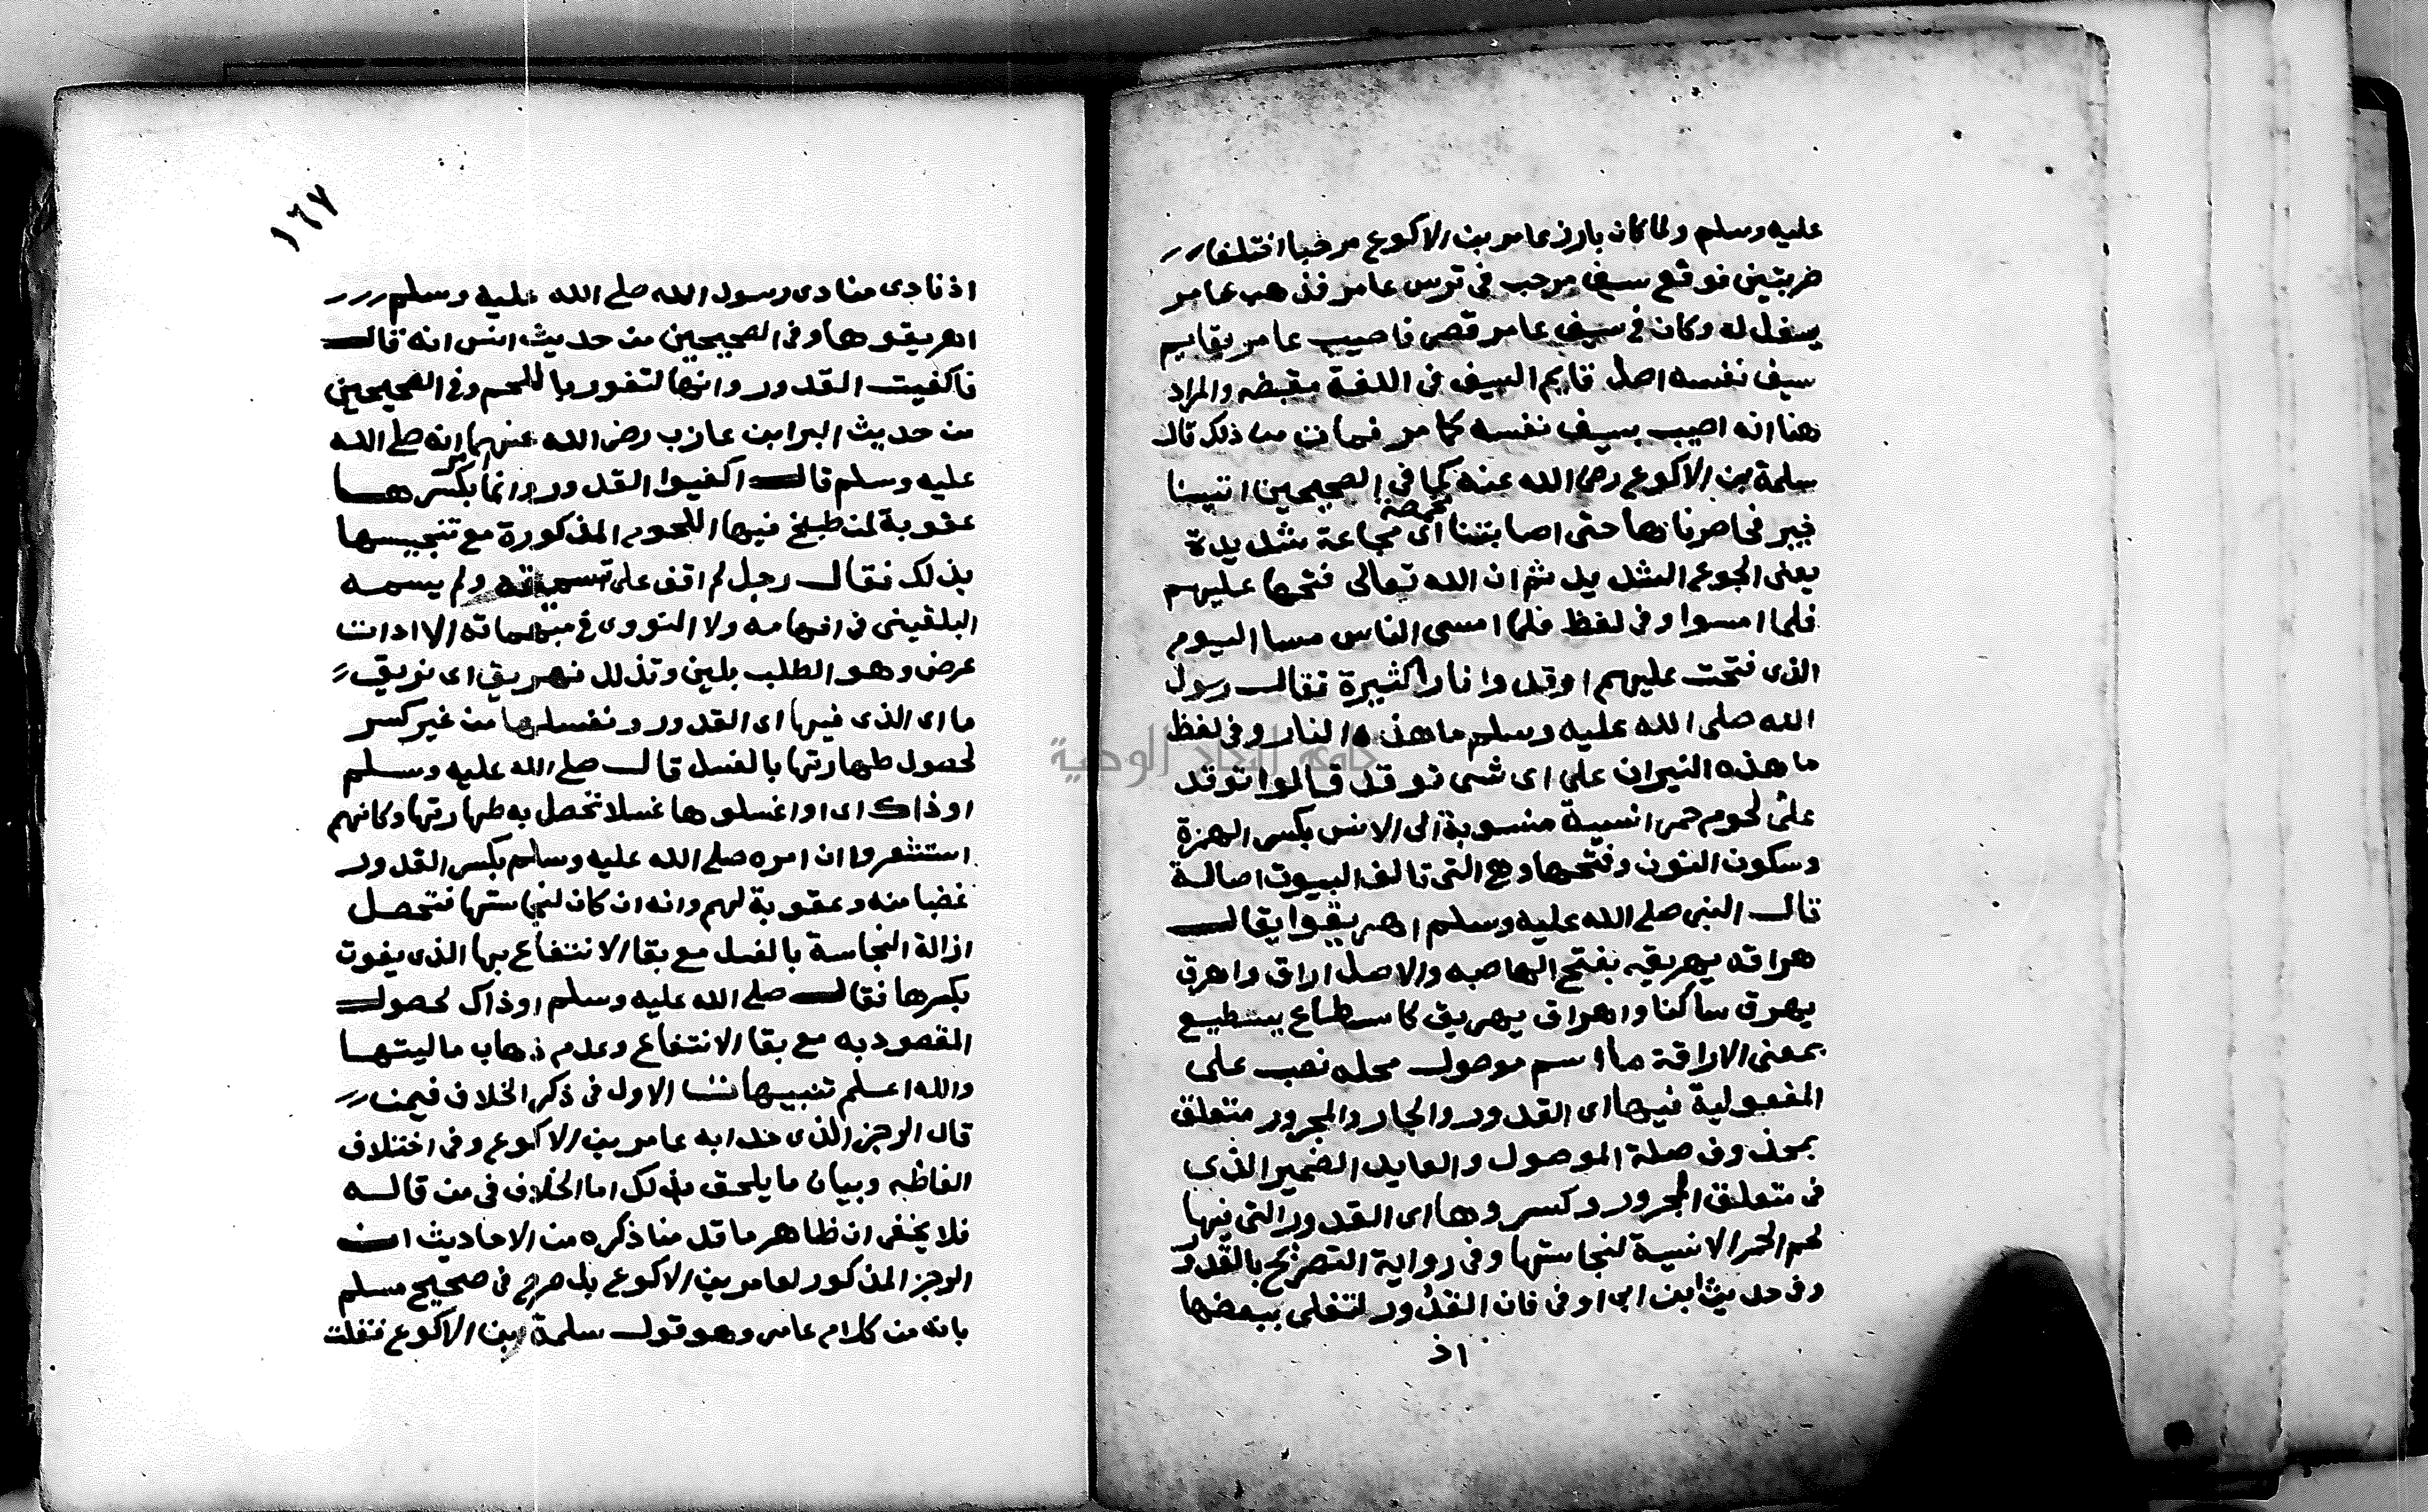 عليه وسلم ولما كان بارز عامر بن الاكوع مرحبا اختلفا
ضربتين فوقع سيف مرحب في ترس عامر فذهب عامر
يسفل له وكان في سيف عامر قصر فاصيب عامر بقايم
سيف نفسه اصل قايم السيف في اللغة مقبضه والمراد
هنا انه اصيب بسيف نفسه كما مر فمات من ذلك قال
سلمة بن الاكوع رضي الله عنه كما في الصحيحين اتينا
خيبر فحاصرناها حتى اصابتنا مخمصة اى مجاعة شديدة
يعنى الجوع الشديد ثم ان الله تعالى فتحها عليهم
فلما امسوا وفى لفظ فلما امسى الناس مسا اليوم
الذى فتحت عليهم اوقدوا نارا كثيرة فقال رسول
الله صلى الله عليه وسلم ما هذه النار وفى لفظ
ما هذه النيران على اى شى توقد قالوا توقد
على لحوم حمر انسية منسوبة الى الانس بكسر الهمزة
وسكون النون وفتحها وهي التى تالف البيوت اصالة
قال النبى صلى الله عليه وسلم اهريقوا يقال
هراقه يهريقه بفتح الها صبه والاصل اراق واهرق
يهرق ساكنا واهراق يهريق كاسطاع يسطيع
بمعنى الاراقة ما اسم موصول محله نصب على
المفعولية فيها اى القدور والجار والمجرور متعلق
بمحذوف صلة الموصول والعايد الضمير الذى
فى متعلق المجرور وكسروها اى القدور التى فيها
لحم الحمر الانسية لنجاستها وفى رواية التصريح بالقدور
وفى حديث ابن ابى اوفى فان القدور لتغلى ببعضها
اذ
١٦٧
اذ نادى منادى رسول الله صلى الله عليه وسلم
اهريقوها وفى الصحيحين من حديث انس انه قال
فاكفيت القدور وانها لتفور باللحم وفى الصحيحين
من حديث البرا بن عازب رضى الله عنهما انه صلى الله
عليه وسلم قال اكفيوا القدور وانما امر بكسرها
عقوبة لمن طبخ فيها اللحوم المذكورة مع تنجيسها
بذلك فقال رجل لم اقف على تسميته ولم يسمه
البلقينى فى افهامه ولا النووى فى مبهماته الا ادات
عرض وهو الطلب بلين وتذلل نهريق اى نريق
ما اى الذى فيها اى القدور ونغسلها من غير كسر
لحصول طهارتها بالغسل قال صلى الله عليه وسلم
اوذاك اى او اغسلوها غسلا تحصل به طهارتها وكانهم
استشعروا ان امره صلى الله عليه وسلم بكسر القدور
غضبا منه وعقوبة لهم وانه ان كان لنجاستها فتحصل
ازالة النجاسة بالغسل مع بقا الانتفاع بها الذى يفوت
بكسرها فقال صلى الله عليه وسلم اوذاك لحصول
المقصود به مع بقا الانتفاع وعدم ذهاب ماليتها
والله اعلم تنبيهات الاول فى ذكر الخلاف فيمن
قال الرجز الذى حدا به عامر بن الاكوع وفى اختلاف
الفاظه وبيان ما يلحق بذلك اما الخلاف فى من قاله
فلا يخفى ان ظاهر ما قدمنا ذكره من الاحاديث ان
الرجز المذكور لعامر بن الاكوع بل صرح فى صحيح مسلم
بانه من كلام عامر وهو قول سلمة بن الاكوع فنفلت